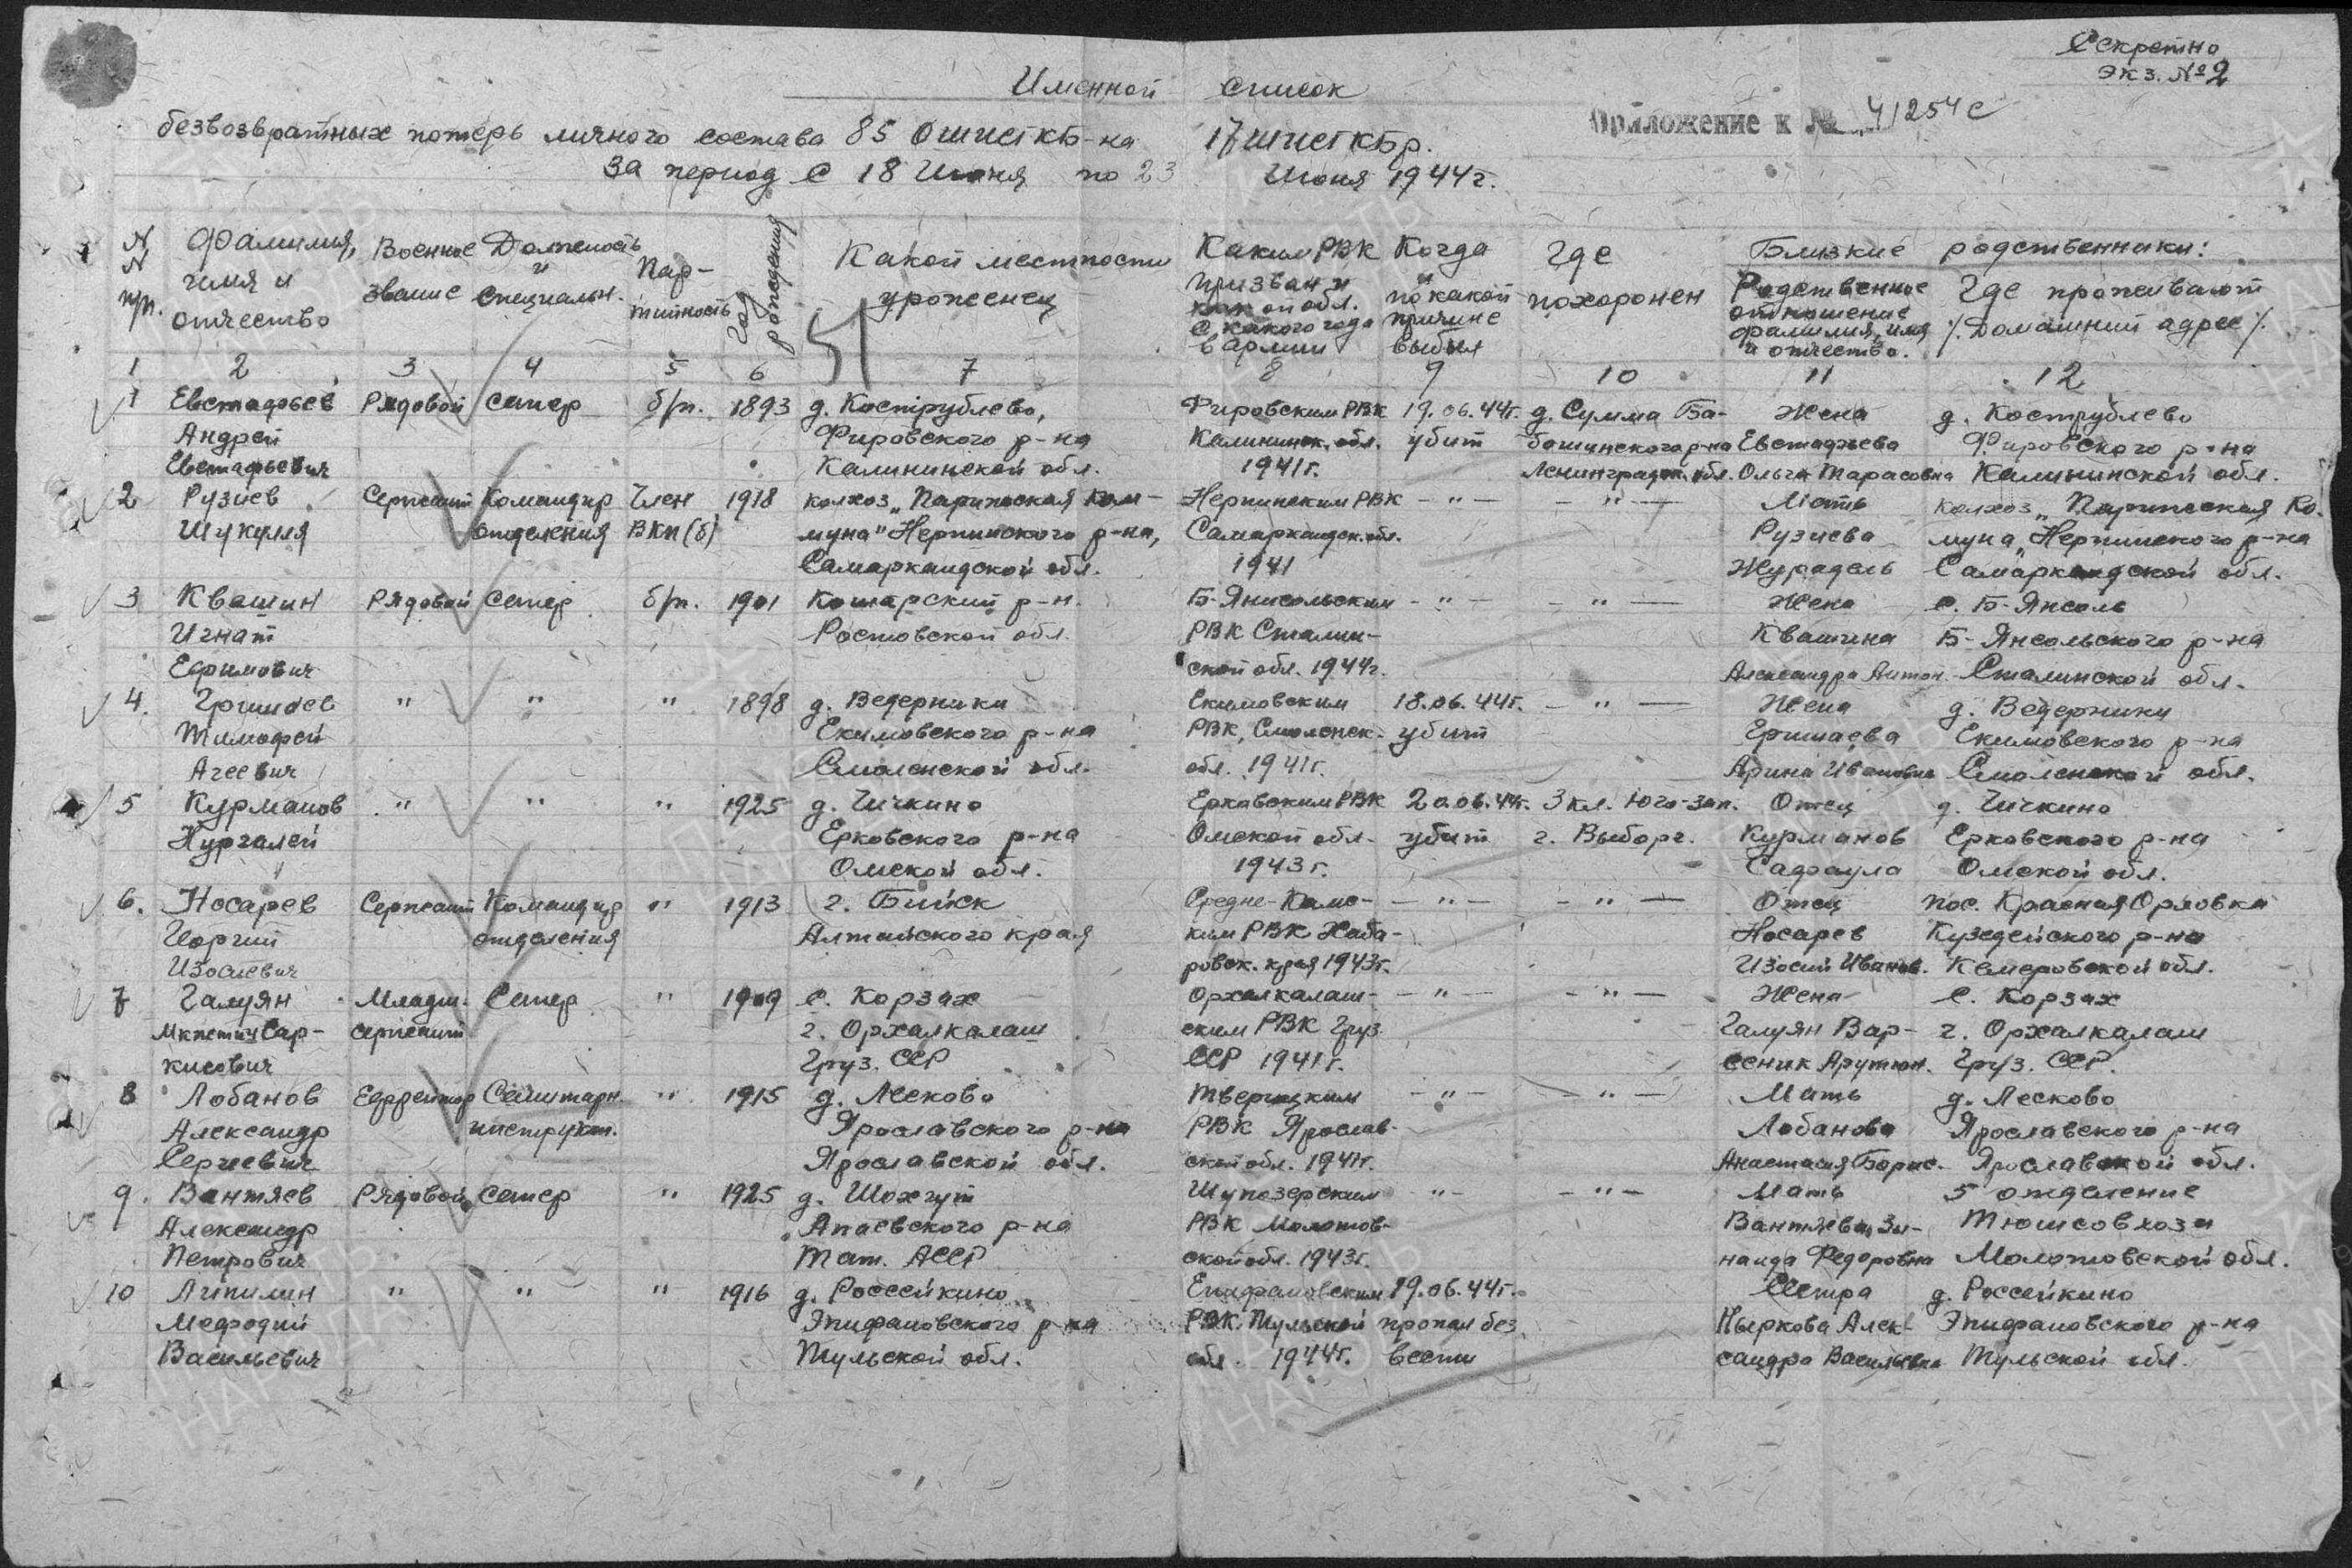 Секретно
Экз. № 2
Именной список
Приложение к № 41254с
безвозвратных потерь личного состава 85 ОШИСГКБ-на 17 ШИСГКБр.
за период с 18 Июня по 23 Июня 1944г.
N N п/п. Фамилия, имя и отчество Военное звание Должность и специальн. Партийность Год рождения Какой местности уроженец Каким РВК призван и какой обл. с какого года в армии Когда и по какой причине выбыл Где похоронен Близкие родственники:
Родственное отношение фамилия, имя и отчество. Где проживают /Домашний адрес/.
51
1 2 3 4 5 6 7 8 9 10 11 12
1 Евстафьев Рядовой сапер б/п. 1893 д. Кострублево, Фировским РВК 19.06.44г. д. Сумма Ба- Жена д. Кострублево
Андрей Фировского р-на Калининск. обл. убит бошинского р-на Евстафьева Фировского р-на
Евстафьевич Калининской обл. 1941г. Ленинградск. обл. Ольга Тарасовна Калининской обл.
2 Рузиев Сержант Командир Член 1918 колхоз „Парижская Ком- Нерпинским РВК — " — — " — Мать колхоз „Парижская Ко-
Шукулля отделения ВКП(б) муна" Нерпинского р-на, Самаркандск. обл. Рузиева муна" Нерпинского р-на
Самаркандской обл. 1941 Журадель Самаркандской обл.
3 Квашин Рядовой сапер б/п. 1901 Кошарский р-н. Б-Янисольским — " — — " — Жена с. Б-Янсоль
Игнат Ростовской обл. РВК Сталин- Квашина Б-Янсольского р-на
Ефимович ской обл. 1944г. Александра Антон. Сталинской обл.
4. " " " 1898 д. Ведерники Екимовским 18.06.44г. — " — Жена д. Ведерники
Тимофей Екимовского р-на РВК, Смоленск. убит Ершаева Екимовского р-на
Агеевич Смоленской обл. обл. 1941г. Арина Ивановна Смоленской обл.
5 Курманов " " " 1925 д. Чичкино Ерковским РВК 20.06.44г. 3 кл. Юго-зап. Отец д. Чичкино
Нургалей Ерковского р-на Омской обл. убит г. Выборг. Курманов Ерковского р-на
Омской обл. 1943г. Сафаула Омской обл.
6. Носарев Сержант Командир " 1913 г. Бийск Средне-Канс- — " — — " — Отец пос. Красная Орловка
Георгий отделения Алтайского края ким РВК Хаба- Носарев Кузедейского р-на
Изосиевич ровск. края 1943г. Изосий Иванов. Кемеровской обл.
7 Галуян Младш. Сапер " 1909 с. Корзах Орхалкалаш- — " — — " — Жена с. Корзах
Мкнетич Сар- сержант г. Орхалкалаш ским РВК Груз. Галуян Вар- г. Орхалкалаш
кисович Груз. ССР ССР 1941г. сеник Арутюн. Груз. ССР.
8 Лобанов Ефрейтор Санитарн. " 1915 д. Лесково Тверицким — " — — " — Мать д. Лесково
Александр инструкт. Ярославского р-на РВК Ярослав- Лобанова Ярославского р-на
Сергеевич Ярославской обл. ской обл. 1941г. Анастасия Борис. Ярославской обл.
9. Вантяев Рядовой сапер " 1925 д. Шохгут Шупозерским — " — — " — Мать 5 отделение
Александр Апаевского р-на РВК Молотов- Вантяева Зи- Тюшсовхоза
Петрович Тат. АССР ской обл. 1943г. наида Федоровна Молотовской обл.
10 Липилин " " " 1916 д. Россейкино Епифановским 19.06.44г. Сестра д. Россейкино
Мефодий Эпифановского р-на РВК Тульской пропал без Ныркова Алек- Эпифановского р-на
Васильевич Тульской обл. обл. 1944г. вести сандра Васильевна Тульской обл.